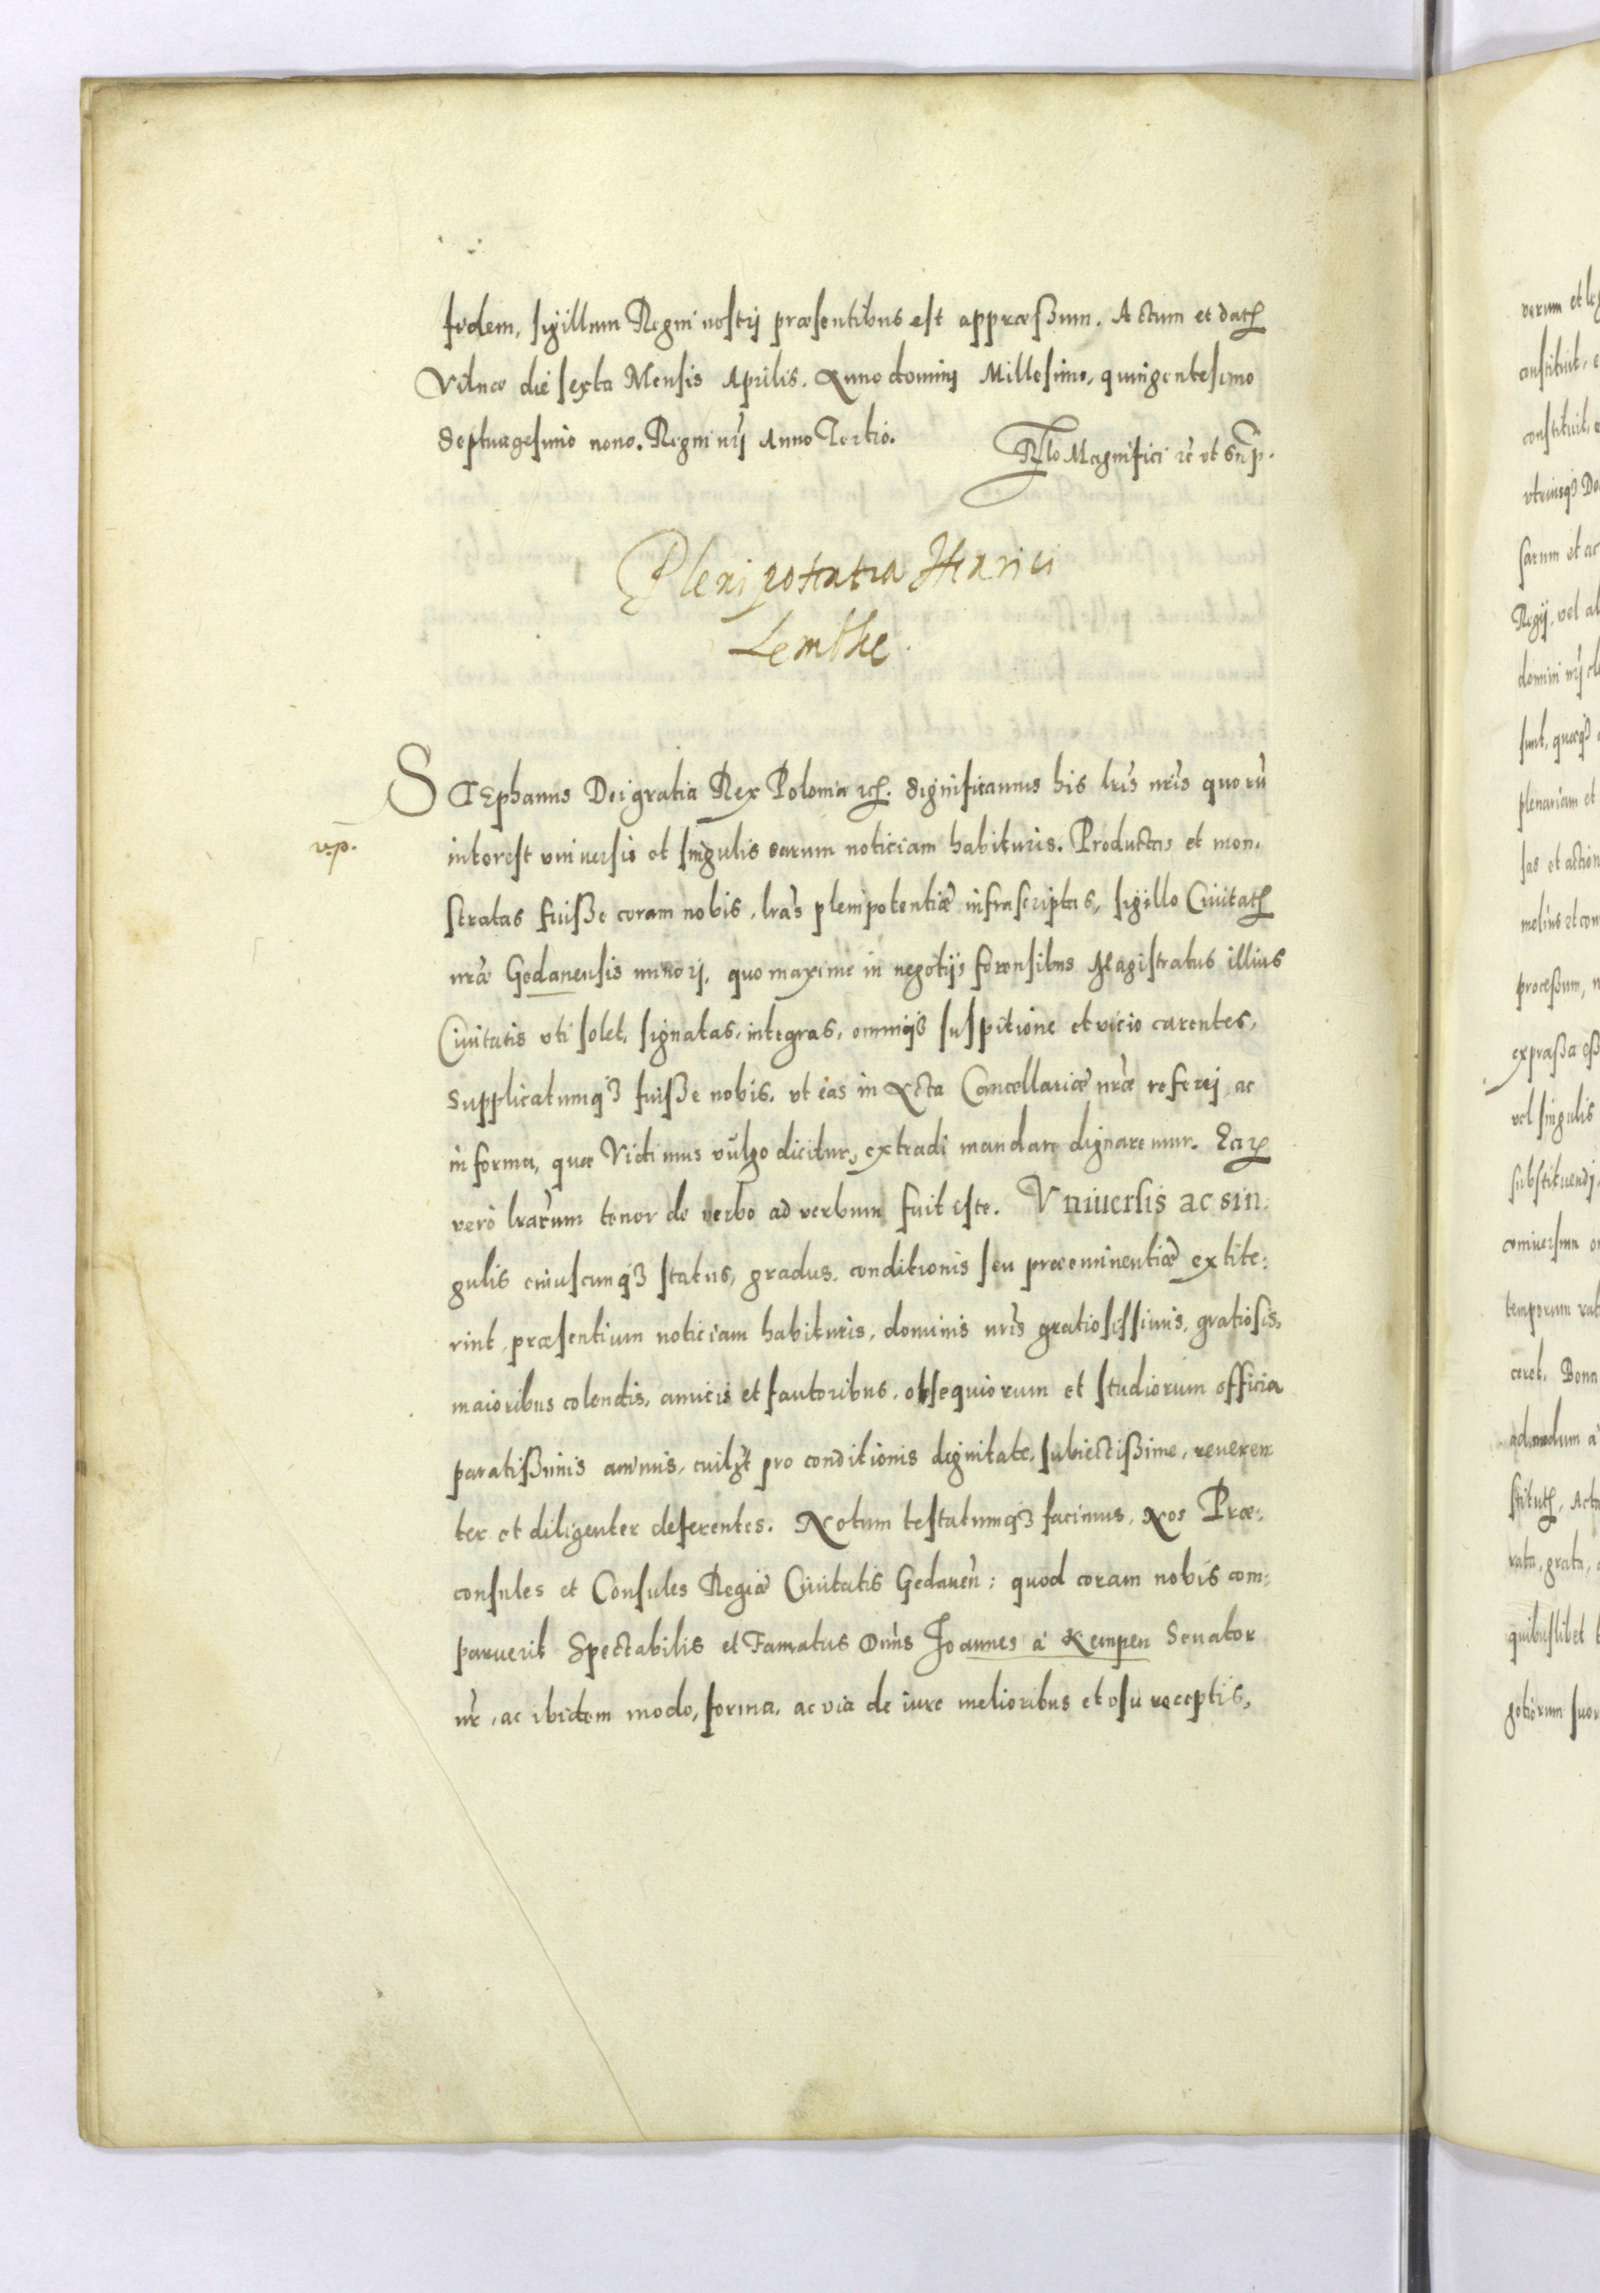 fidem, sigillum Regni nostrj præsentibus est appræssum. Actum et datꝫ
Vilnæ die sexta Mensis Aprilis. Anno dominj Millesimo, quingentesimo
Septuagesimo nono. Regni nrj Anno Tertio.
Rlo Magnifici ꝛc̃ vt s.
Plenipotentia Henrici
Lembke.
STEphanus Dei gratia Rex Poloniæ ꝛcꝫ. Significamus his lris nris quorū
vp.
interest vniuersis et singulis earum noticiam habituris. Productas et mon,
stratas fuisse coram nobis, lras plenipotentiæ infrascriptas, sigillo Ciuitatꝫ
nræ Gedanensis minorj, quo maxime in negotijs forensibus Magistratus illius
Ciuitatis vti solet, signatas, integras, omniqꝫ suspitione et vicio carentes,
Supplicatumqꝫ fuisse nobis, vt eas in Acta Cancellariæ nræ referrj ac
in forma, quæ Vidimus vulgo dicitur, extradi mandare dignaremur. Earꝫ
verò lrarum tenor de verbo ad verbum fuit iste. Vniuersis ac sin.
gulis cuiuscunqꝫ status, gradus, conditionis seu præeminentiæ extite:
rint, præsentium noticiam habituris, dominis nris gratiosissimis, gratiosis,
maioribus colendis, amicis et fautoribus, obsequiorum et studiorum officia
paratissimis animis, cuilꝫt pro conditionis dignitate, subiectissime, reueren
ter et diligenter deferentes. Notum testatumqꝫ facimus, Nos Præ:
consules et Consules Regiæ Ciuitatis Gedaneñ: quod coram nobis com:
paruerit Spectabilis et Famatus Dnns Joannes à Kempen Senator
nr, ac ibidem modo, forma, ac via de iure melioribus et vsu receptis,
verum et leg
constituit, e
constituit, e
vtriusqꝫ Do
sarum et ac
Regij, vel al
domini nrj cle
sunt, quæqꝫ
plenariam et
sas et action
melius et con
processum, n
expræssa ess
vel singulis
substituendj,
comuersum
temporum rat
ceret. Dona
admodum a
stitutꝫ, Acta
rata, grata,
quibuslibet
gotiorum suor